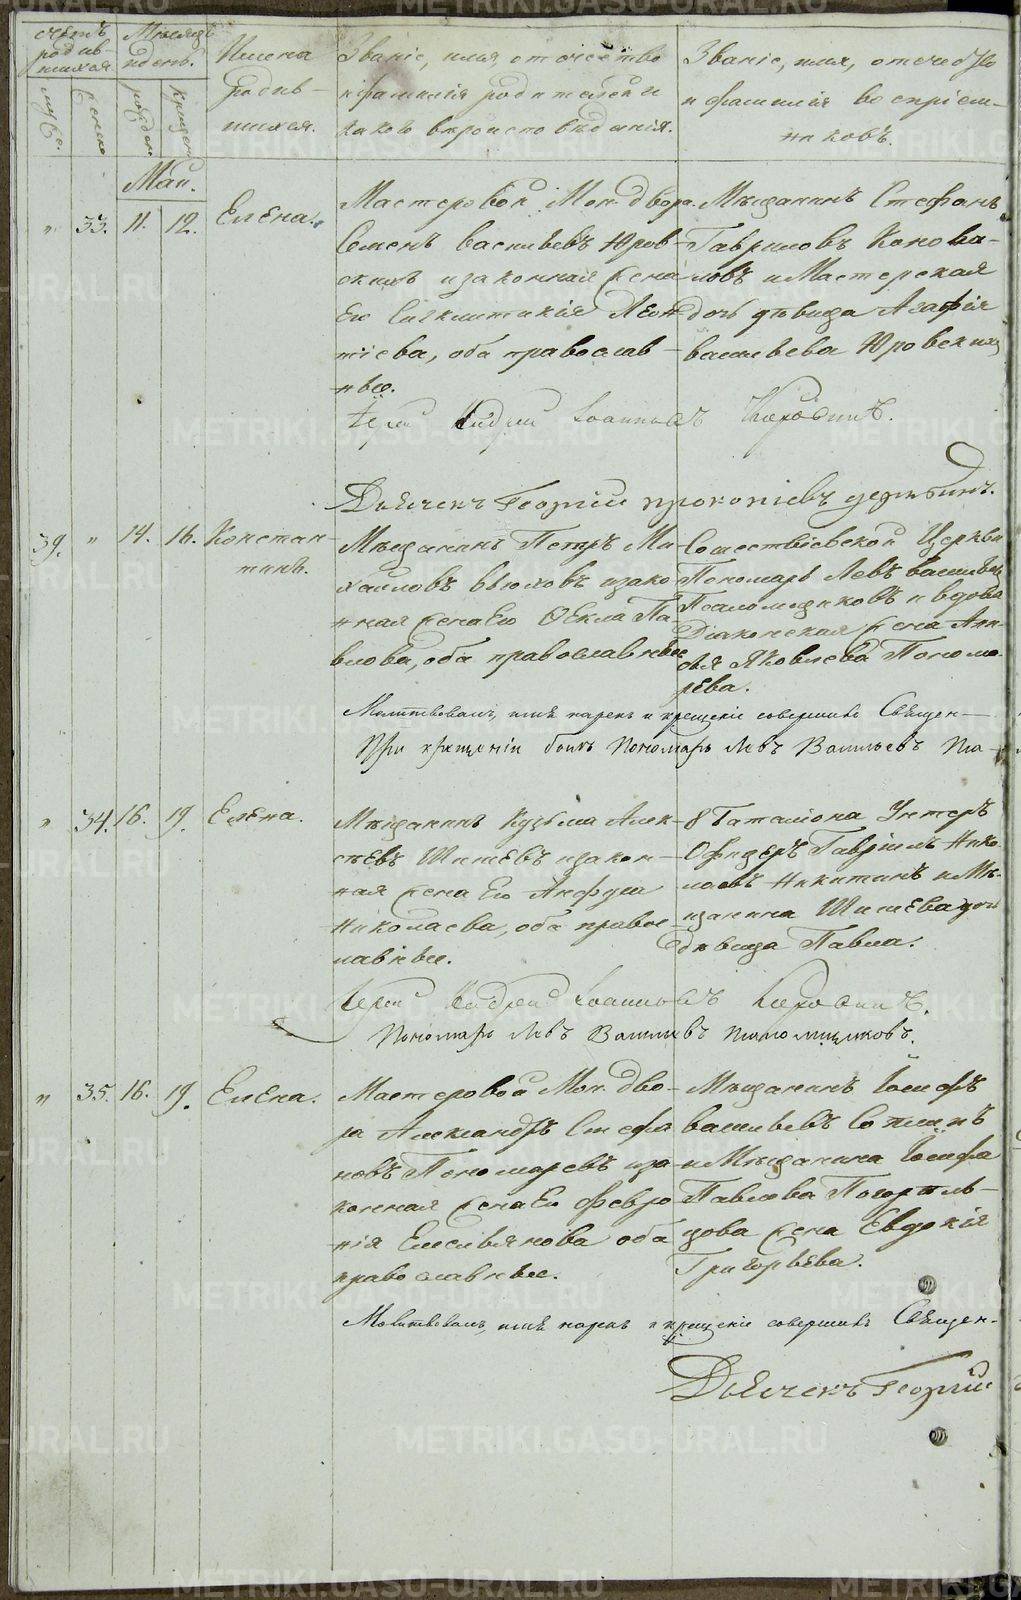 Счетъ родив-шихся
Мѣсяцъ и день.
Имена родив-шихся.
Званіе, имя, отчество
и фамилія родителей и
какого вѣроисповѣданія.
Званіе, имя, отечество
и фамилія воспріем-
никовъ.
муже.
женско
рожден.
крещен.
Маи.
" 33. 11. 12. Елена.
Мастеровой Мон. двора
Семенъ Васильевъ Юров-
скихъ и законная жена
Его Сигклитикія Леон-
тіева, оба православ-
ные.
Мѣщанинъ Стефанъ
Гавриловъ Конова-
ловъ и Мастерская
дочь дѣвица Агафія
Васильева Юровскихъ
Іерей Андрей Іоанновъ
Дьячекъ Георгій Прокопіевъ
39. " 14. 16. Констан-
тинъ.
Мѣщанинъ Петръ Ми-
хайловъ Вьюховъ и зако-
нная жена Его Ѳекла Па-
влова, оба православные
Сошествіевской Церкви
Пономарь Левъ Васильевъ
Псаломщиковъ и вдова
Діаконская жена Анн-
Яковлева Пономо-
рева.
Молитвовалъ, имя нарекъ и крещеніе совершилъ Священ-
При крещеніи былъ Пономарь Левъ Васильевъ
" 34. 16. 19. Елена.
Мѣщанинъ Кузьма Алек-
сѣевъ Шишевъ и закон-
ная жена Его Анфуза
Николаева, оба право
славные.
8 Баталіона Унтеръ
Офицеръ Гавріилъ Нико-
лаевъ Никитинъ и Мѣ-
щанина Шишева дочь
дѣвица Павла.
Іерей Андрей Іоанновъ
Пономарь Левъ Васильевъ Псаломщиковъ.
" 35. 16. 19. Елена.
Мастеровой Мон. дво-
ра Александръ Стефа
новъ Пономаревъ и за-
конная жена Его Февро
нія Емельянова оба
православные.
Мѣщанинъ Іосифъ
Васильевъ
и Мѣщанина Іосифа
Павлова Погориль-
цова жена Евдокія
Григорьева.
Молитвовалъ, имя нарекъ и крещеніе совершилъ Священ-
Дьячекъ Георгій
METRIKI.GASO-URAL.RU